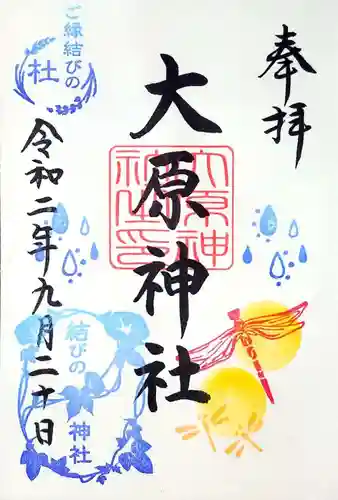 奉拝
大原神社
大原神
社之印
令和二年九月二十日
ご縁結びの
社
結びの
神社